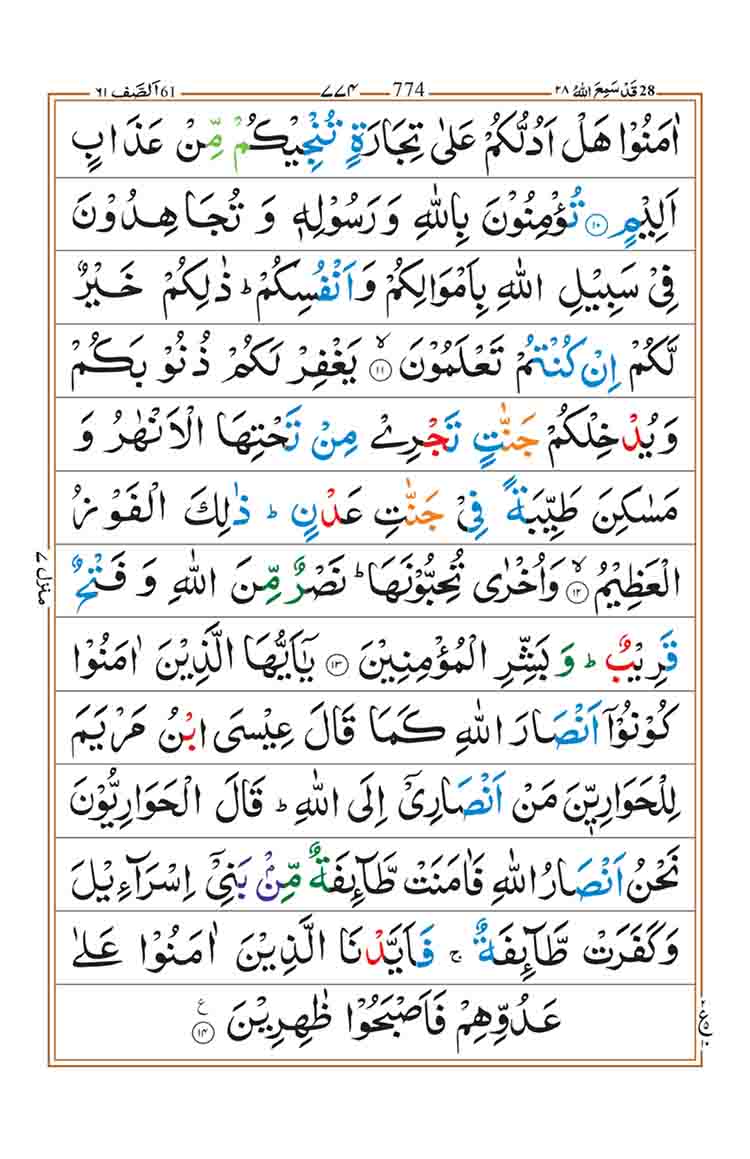 28 قَدْ سَمِعَ اللهُ ٢٨ 774 ٧٧۴ 61 اَلصَّف ٦١
اٰمَنُوْا هَلْ اَدُلُّكُمْ عَلٰى تِجَارَةٍ تُنْجِيْكُمْ مِّنْ عَذَابٍ
اَلِيْمٍ ۝١٠ تُؤْمِنُوْنَ بِاللّٰهِ وَرَسُوْلِهٖ وَ تُجَاهِدُوْنَ
فِيْ سَبِيْلِ اللّٰهِ بِاَمْوَالِكُمْ وَاَنْفُسِكُمْ ؕ ذٰلِكُمْ خَيْرٌ
لَّكُمْ اِنْ كُنْتُمْ تَعْلَمُوْنَ ۙ۝١١ يَغْفِرْ لَكُمْ ذُنُوْبَكُمْ
وَيُدْخِلْكُمْ جَنّٰتٍ تَجْرِيْ مِنْ تَحْتِهَا الْاَنْهٰرُ وَ
مَسٰكِنَ طَيِّبَةً فِيْ جَنّٰتِ عَدْنٍ ؕ ذٰلِكَ الْفَوْزُ
الْعَظِيْمُ ۙ۝١٢ وَاُخْرٰى تُحِبُّوْنَهَا ؕ نَصْرٌ مِّنَ اللّٰهِ وَ فَتْحٌ
قَرِيْبٌ ؕ وَبَشِّرِ الْمُؤْمِنِيْنَ ۝١٣ يٰۤاَيُّهَا الَّذِيْنَ اٰمَنُوْا
كُوْنُوْۤا اَنْصَارَ اللّٰهِ كَمَا قَالَ عِيْسَى ابْنُ مَرْيَمَ
لِلْحَوَارِيّٖنَ مَنْ اَنْصَارِيْۤ اِلَى اللّٰهِ ؕ قَالَ الْحَوَارِيُّوْنَ
نَحْنُ اَنْصَارُ اللّٰهِ فَاٰمَنَتْ طَّآئِفَةٌ مِّنْۢ بَنِيْۤ اِسْرَآءِيْلَ
وَكَفَرَتْ طَّآئِفَةٌ ۚ فَاَيَّدْنَا الَّذِيْنَ اٰمَنُوْا عَلٰى
عَدُوِّهِمْ فَاَصْبَحُوْا ظٰهِرِيْنَ ۝١٤ ع
منزل ٧